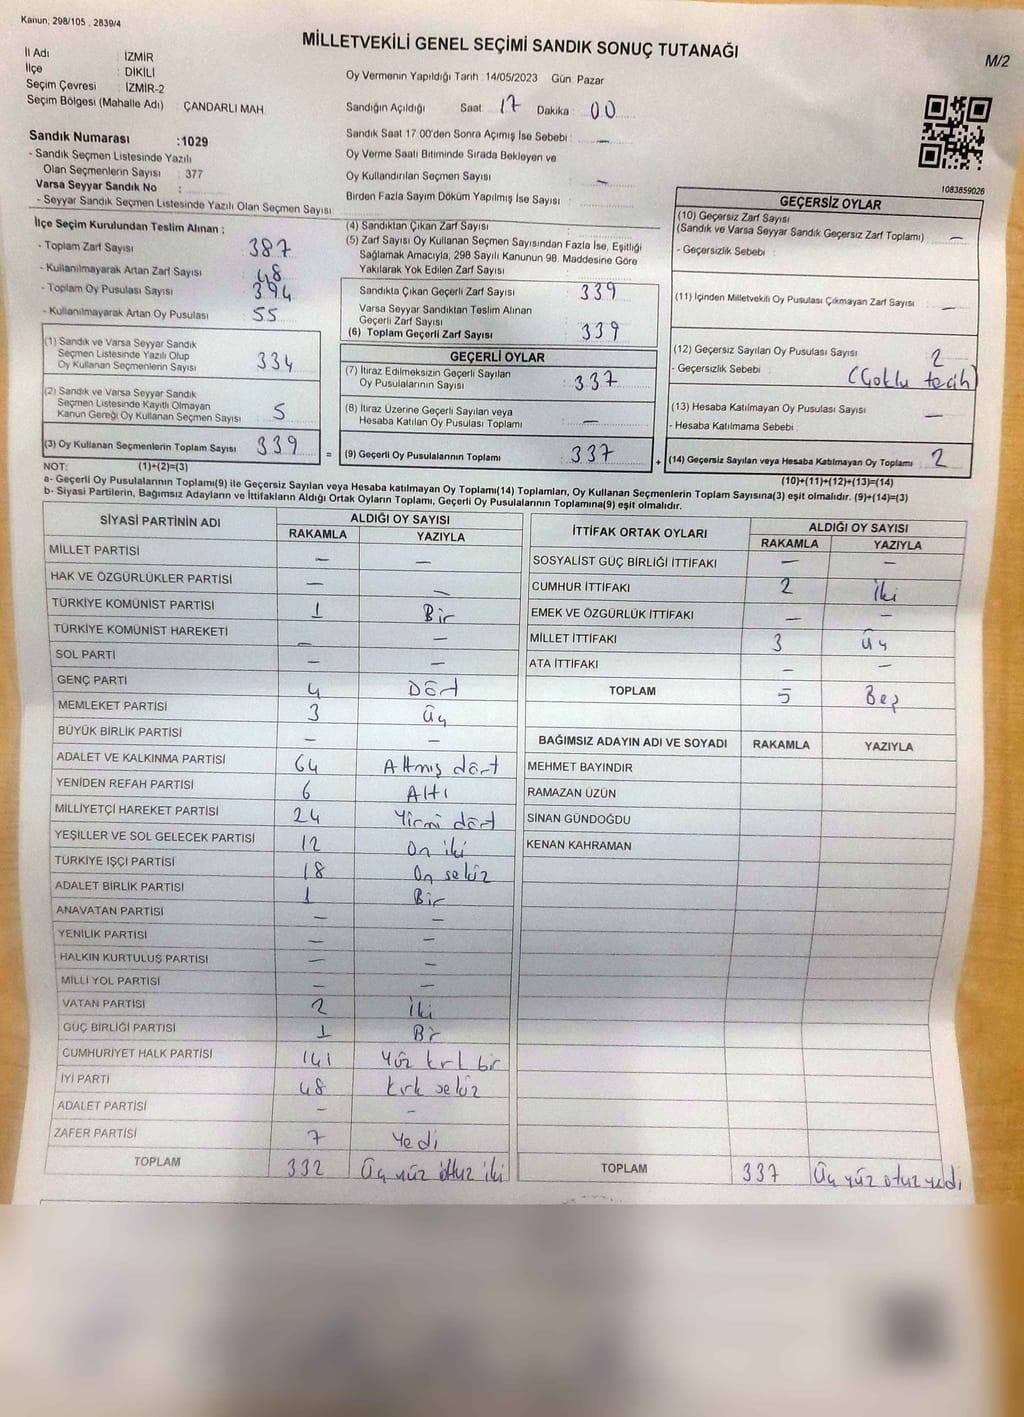 Kanun; 298/105 , 2839/4
MİLLETVEKİLİ GENEL SEÇİMİ SANDIK SONUÇ TUTANAĞI
M/2
İl Adı : İZMİR
İlçe : DİKİLİ
Seçim Çevresi : İZMİR-2
Seçim Bölgesi (Mahalle Adı) : ÇANDARLI MAH
Sandık Numarası :1029
- Sandık Seçmen Listesinde Yazılı
Olan Seçmenlerin Sayısı : 377
Varsa Seyyar Sandık No :
- Seyyar Sandık Seçmen Listesinde Yazılı Olan Seçmen Sayısı :
Oy Vermenin Yapıldığı Tarih : 14/05/2023 Gün Pazar
Sandığın Açıldığı Saat : 17 Dakika : 00
Sandık Saat 17:00'den Sonra Açımış İse Sebebi : —
Oy Verme Saati Bitiminde Sırada Bekleyen ve
Oy Kullandırılan Seçmen Sayısı : —
Birden Fazla Sayım Döküm Yapılmış İse Sayısı :
1083859026
İlçe Seçim Kurulundan Teslim Alınan ;
- Toplam Zarf Sayısı : 387
- Kullanılmayarak Artan Zarf Sayısı : 48
- Toplam Oy Pusulası Sayısı : 394
- Kullanılmayarak Artan Oy Pusulası : 55
(1) Sandık ve Varsa Seyyar Sandık
Seçmen Listesinde Yazılı Olup
Oy Kullanan Seçmenlerin Sayısı : 334
(2) Sandık ve Varsa Seyyar Sandık
Seçmen Listesinde Kayıtlı Olmayan
Kanun Gereği Oy Kullanan Seçmen Sayısı : 5
(3) Oy Kullanan Seçmenlerin Toplam Sayısı : 339
(4) Sandıktan Çıkan Zarf Sayısı :
(5) Zarf Sayısı Oy Kullanan Seçmen Sayısından Fazla İse, Eşitliği
Sağlamak Amacıyla, 298 Sayılı Kanunun 98. Maddesine Göre
Yakılarak Yok Edilen Zarf Sayısı :
Sandıkta Çıkan Geçerli Zarf Sayısı : 339
Varsa Seyyar Sandıktan Teslim Alınan
Geçerli Zarf Sayısı :
(6) Toplam Geçerli Zarf Sayısı : 339
GEÇERLİ OYLAR
(7) İtiraz Edilmeksizin Geçerli Sayılan
Oy Pusulalarının Sayısı : 337
(8) İtiraz Üzerine Geçerli Sayılan veya
Hesaba Katılan Oy Pusulası Toplamı : —
= (9) Geçerli Oy Pusulalarının Toplamı : 337
GEÇERSİZ OYLAR
(10) Geçersiz Zarf Sayısı
(Sandık ve Varsa Seyyar Sandık Geçersiz Zarf Toplamı) : —
- Geçersizlik Sebebi :
(11) İçinden Milletvekili Oy Pusulası Çıkmayan Zarf Sayısı : —
(12) Geçersiz Sayılan Oy Pusulası Sayısı : 2
- Geçersizlik Sebebi : (Çoklu tecih)
(13) Hesaba Katılmayan Oy Pusulası Sayısı : —
- Hesaba Katılmama Sebebi :
+ (14) Geçersiz Sayılan veya Hesaba Katılmayan Oy Toplamı : 2
NOT: (1)+(2)=(3)
(10)+(11)+(12)+(13)=(14)
a- Geçerli Oy Pusulalarının Toplamı(9) ile Geçersiz Sayılan veya Hesaba katılmayan Oy Toplamı(14) Toplamları, Oy Kullanan Seçmenlerin Toplam Sayısına(3) eşit olmalıdır. (9)+(14)=(3)
b- Siyasi Partilerin, Bağımsız Adayların ve İttifakların Aldığı Ortak Oyların Toplamı, Geçerli Oy Pusulalarının Toplamına(9) eşit olmalıdır.
SİYASİ PARTİNİN ADI ALDIĞI OY SAYISI
RAKAMLA YAZIYLA
MİLLET PARTİSİ — —
HAK VE ÖZGÜRLÜKLER PARTİSİ — —
TÜRKİYE KOMÜNİST PARTİSİ 1 Bir
TÜRKİYE KOMÜNİST HAREKETİ — —
SOL PARTİ — —
GENÇ PARTİ 4 Dört
MEMLEKET PARTİSİ 3 Üç
BÜYÜK BİRLİK PARTİSİ — —
ADALET VE KALKINMA PARTİSİ 64 Altmış dört
YENİDEN REFAH PARTİSİ 6 Altı
MİLLİYETÇİ HAREKET PARTİSİ 24 Yirmi dört
YEŞİLLER VE SOL GELECEK PARTİSİ 12 On iki
TÜRKİYE İŞÇİ PARTİSİ 18 On sekiz
ADALET BİRLİK PARTİSİ 1 Bir
ANAVATAN PARTİSİ — —
YENİLİK PARTİSİ — —
HALKIN KURTULUŞ PARTİSİ — —
MİLLİ YOL PARTİSİ — —
VATAN PARTİSİ 2 İki
GÜÇ BİRLİĞİ PARTİSİ 1 Bir
CUMHURİYET HALK PARTİSİ 141 Yüz kırk bir
İYİ PARTİ 48 kırk sekiz
ADALET PARTİSİ — —
ZAFER PARTİSİ 7 Yedi
TOPLAM 332 Üç yüz otuz iki
İTTİFAK ORTAK OYLARI ALDIĞI OY SAYISI
RAKAMLA YAZIYLA
SOSYALİST GÜÇ BİRLİĞİ İTTİFAKI — —
CUMHUR İTTİFAKI 2 İki
EMEK VE ÖZGÜRLÜK İTTİFAKI — —
MİLLET İTTİFAKI 3 Üç
ATA İTTİFAKI — —
TOPLAM 5 Beş
BAĞIMSIZ ADAYIN ADI VE SOYADI RAKAMLA YAZIYLA
MEHMET BAYINDIR
RAMAZAN ÜZÜN
SİNAN GÜNDOĞDU
KENAN KAHRAMAN
TOPLAM 337 Üç yüz otuz yedi